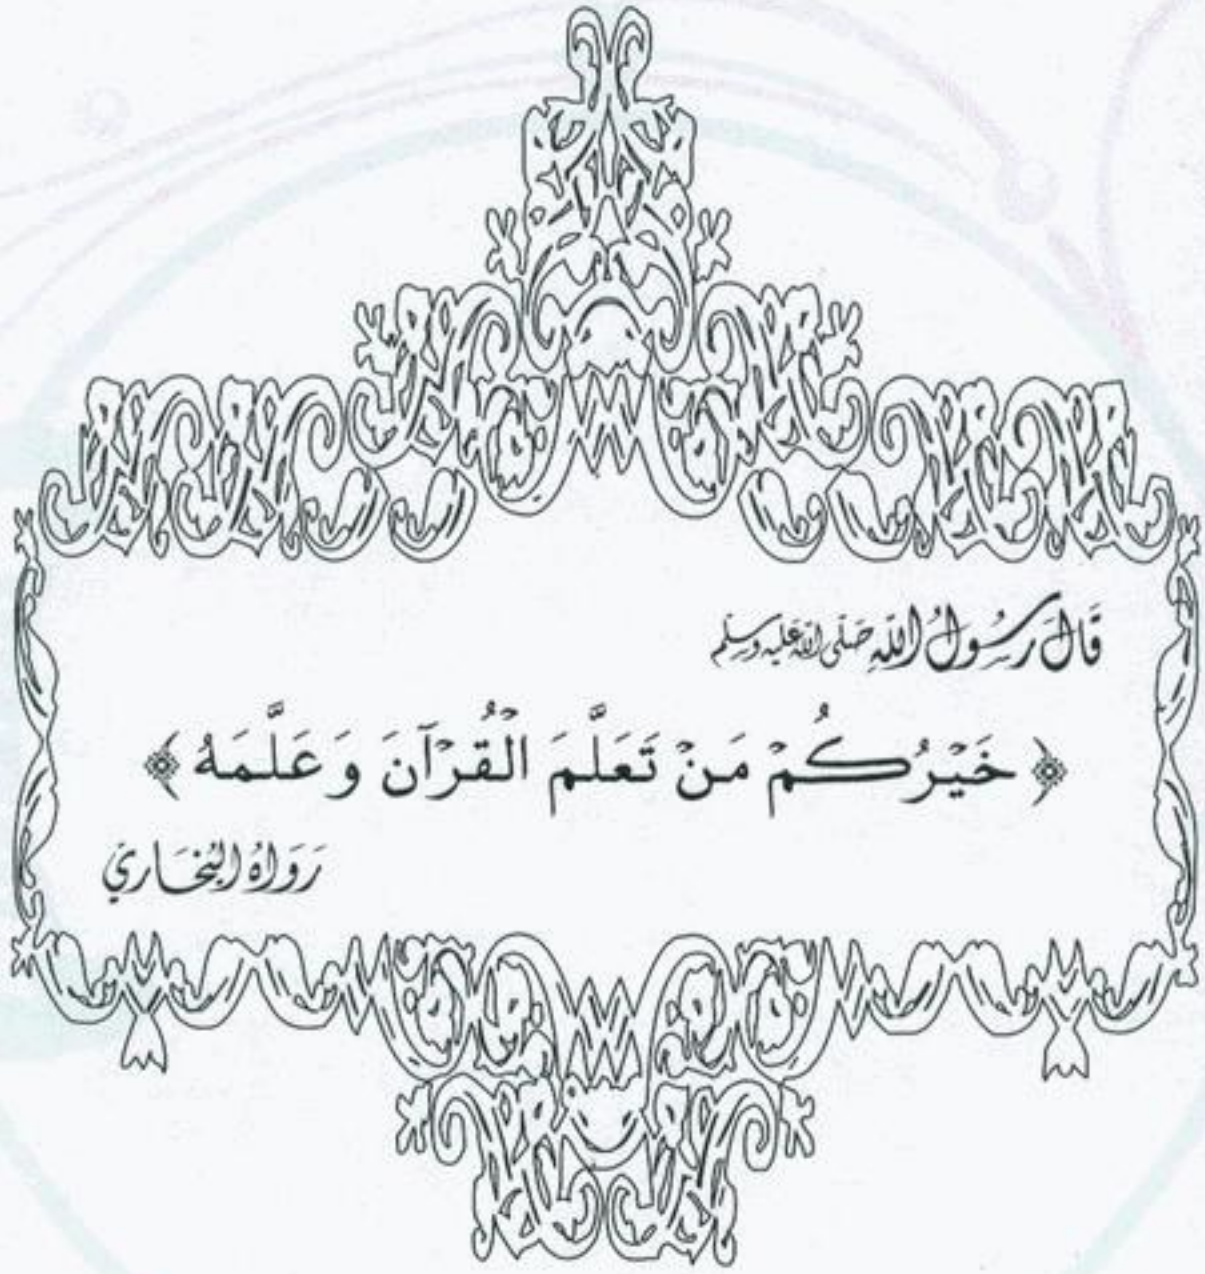 قَالَ رَسُولُ اللّهِ صَلَّى اللّه عَليْهِ وَسِلَّم
﴿ خَيْرُكُمْ مَنْ تَعَلَّمَ الْقُرْآنَ وَعَلَّمَهُ ﴾
رَوَاهُ البُخَاري